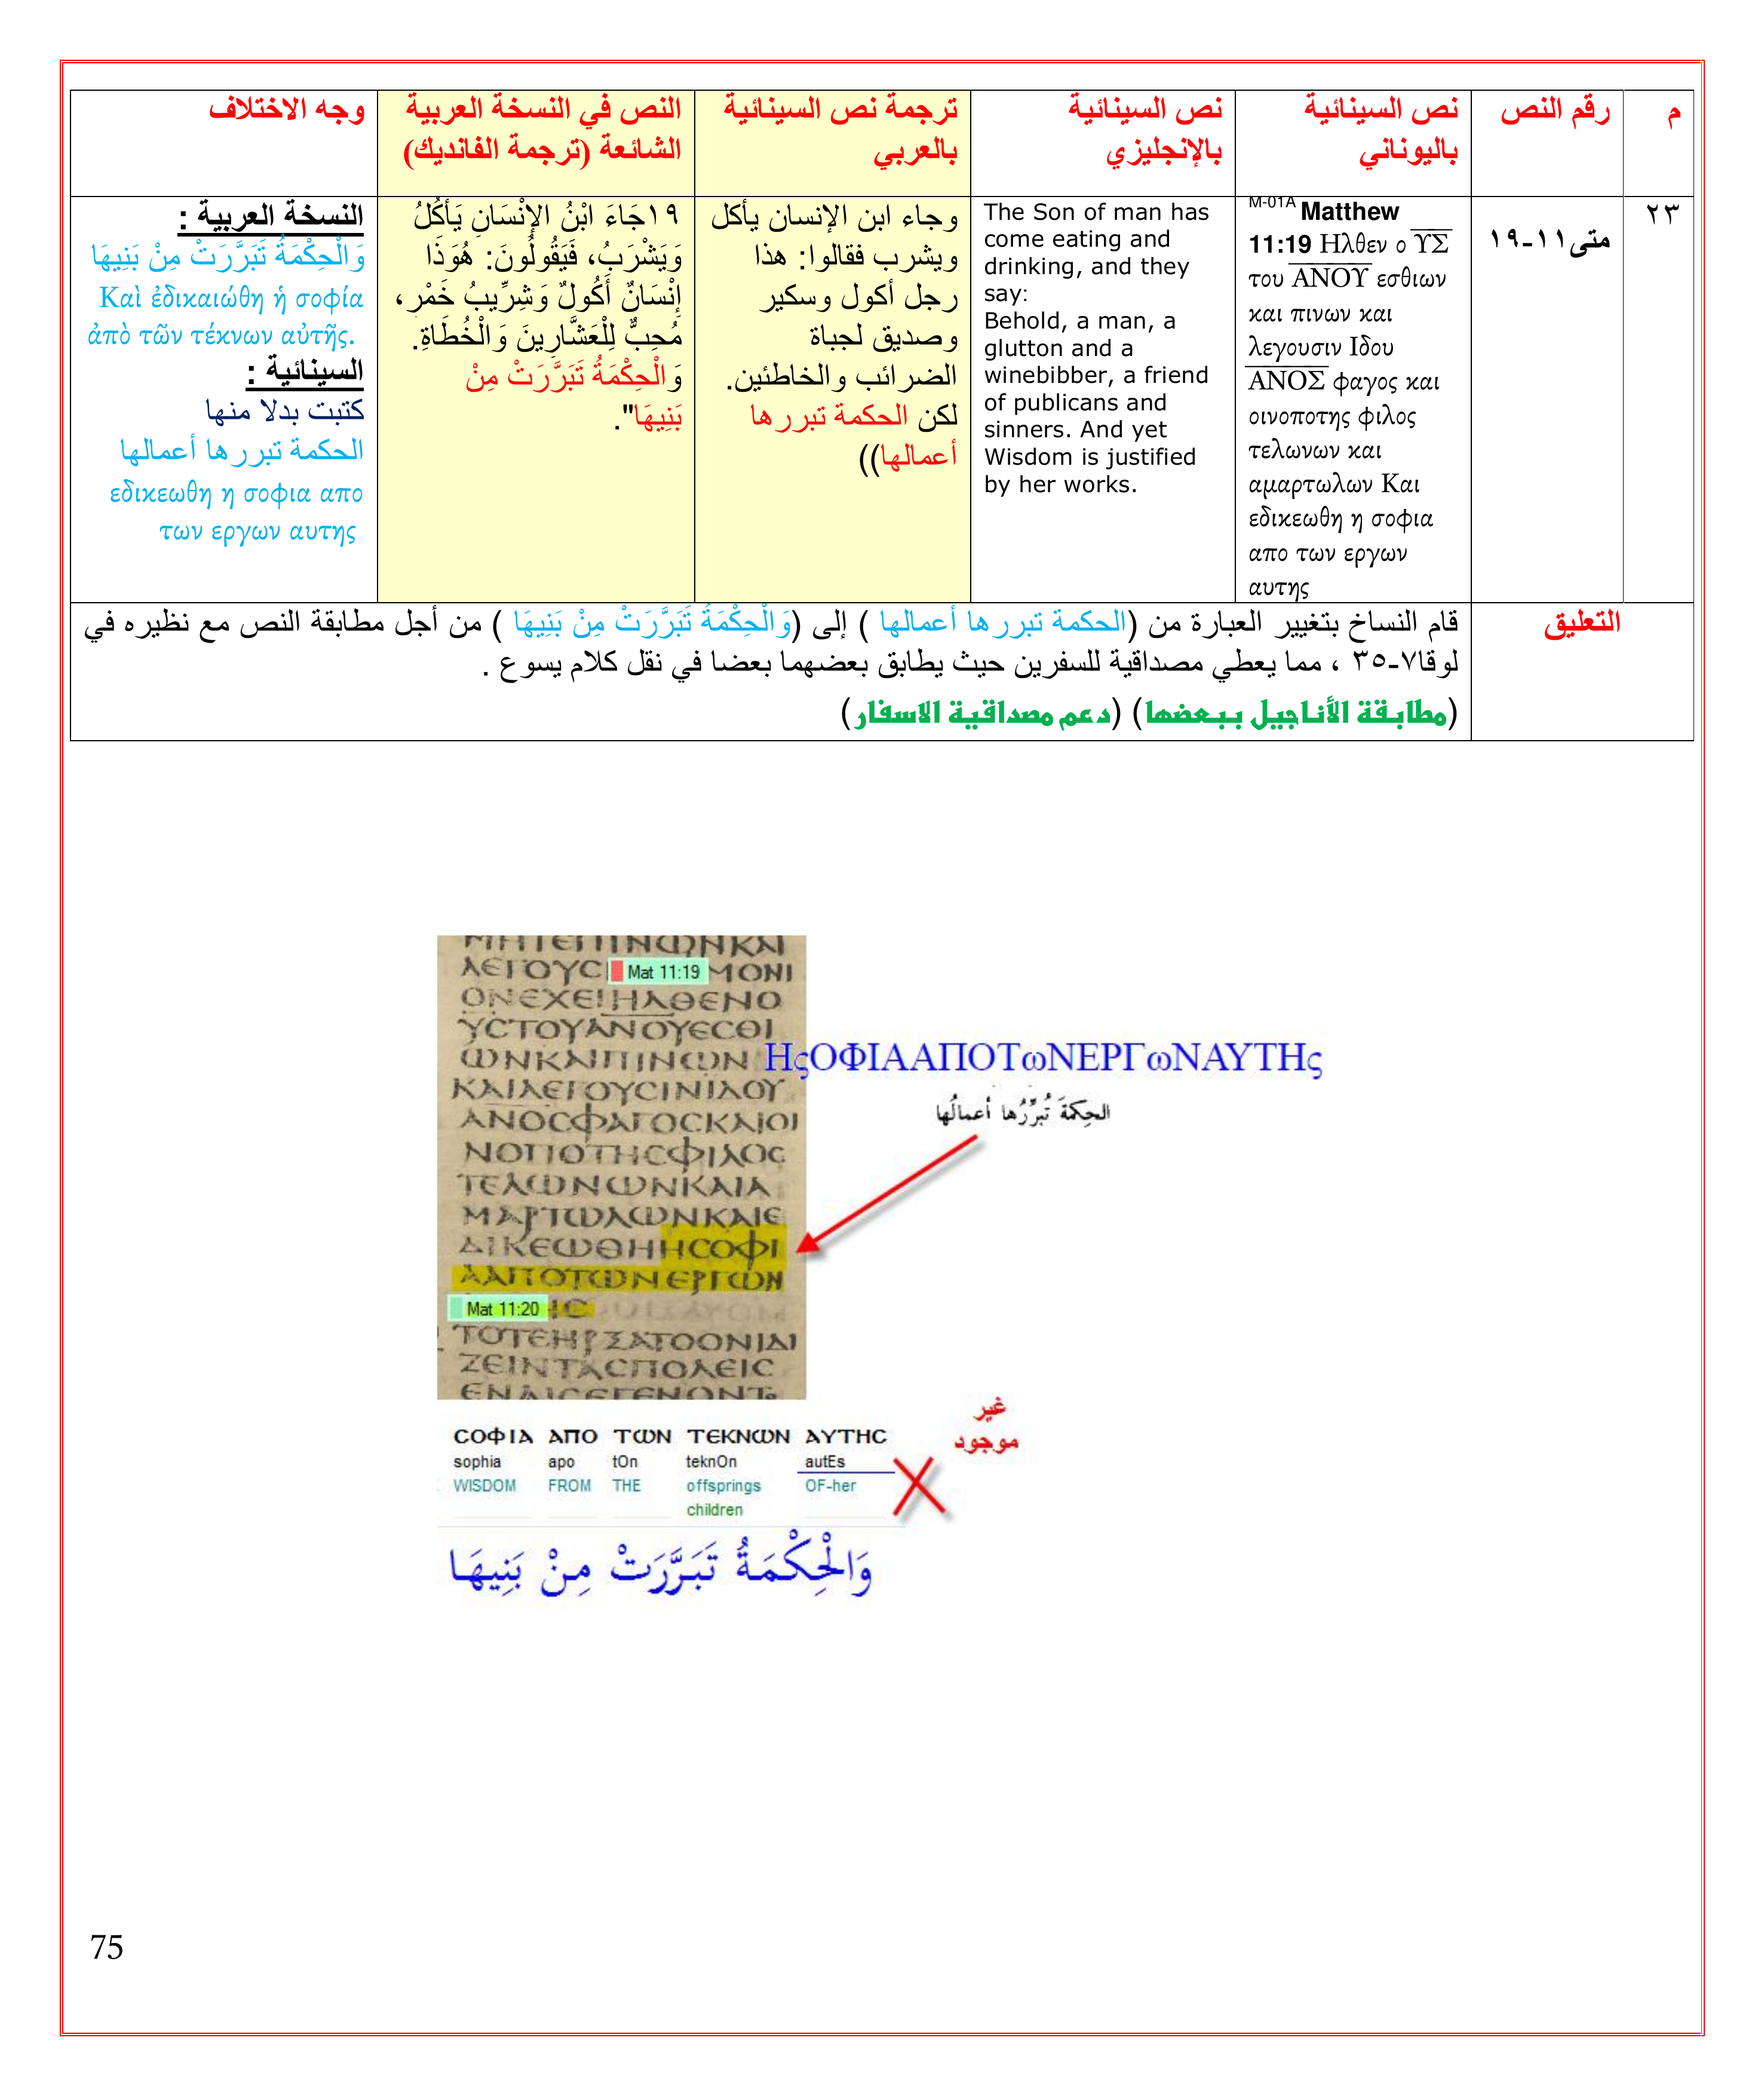 م
رقم النص
نص السينائية
باليوناني
نص السينائية
بالإنجليزي
ترجمة نص السينائية
بالعربي
النص في النسخة العربية
الشائعة (ترجمة الفانديك)
وجه الاختلاف
٢٣
متى١١-١٩
M-01A Matthew
11:19 Ηλθεν ο ΥΣ
του ΑΝΟΥ εσθιων
και πινων και
λεγουσιν Ιδου
ΑΝΟΣ φαγος και
οινοποτης φιλος
τελωνων και
αμαρτωλων Και
εδικεωθη η σοφια
απο των εργων
αυτης
The Son of man has
come eating and
drinking, and they
say:
Behold, a man, a
glutton and a
winebibber, a friend
of publicans and
sinners. And yet
Wisdom is justified
by her works.
وجاء ابن الإنسان يأكل
ويشرب فقالوا: هذا
رجل أكول وسكير
وصديق لجباة
الضرائب والخاطئين.
لكن الحكمة تبررها
أعمالها))
١٩جَاءَ ابْنُ الإِنْسَانِ يَأْكُلُ
وَيَشْرَبُ، فَيَقُولُونَ: هُوَذَا
إِنْسَانٌ أَكُولٌ وَشِرِّيبُ خَمْرٍ،
مُحِبٌّ لِلْعَشَّارِينَ وَالْخُطَاةِ.
وَالْحِكْمَةُ تَبَرَّرَتْ مِنْ
بَنِيهَا".
النسخة العربية :
وَالْحِكْمَةُ تَبَرَّرَتْ مِنْ بَنِيهَا
Καὶ ἐδικαιώθη ἡ σοφία
ἀπὸ τῶν τέκνων αὐτῆς.
السينائية :
كتبت بدلا منها
الحكمة تبررها أعمالها
εδικεωθη η σοφια απο
των εργων αυτης
التعليق
قام النساخ بتغيير العبارة من (الحكمة تبررها أعمالها ) إلى (وَالْحِكْمَةُ تَبَرَّرَتْ مِنْ بَنِيهَا ) من أجل مطابقة النص مع نظيره في
لوقا٧-٣٥ ، مما يعطي مصداقية للسفرين حيث يطابق بعضهما بعضا في نقل كلام يسوع .
(مطابقة الأناجيل ببعضها) (دعم مصداقية الاسفار)
ΛΕΓΟΥC Mat 11:19 ΜΟΝΙ
ΟΝΕΧΕΙΗΛΘΕΝΟ
ΥCΤΟΥΑΝΟΥΕCΘΙ
ΩΝΚΑΙΠΙΝΩΝ
ΗςΟΦΙΑΑΠΟΤωΝΕΡΓωΝΑΥΤΗς
ΚΑΙΛΕΓΟΥCΙΝΙΔΟΥ
الحِكمَةَ تُبرِّرُها أعمالُها
ΑΝΟCΦΑΓΟCΚΑΙΟΙ
ΝΟΠΟΤΗCΦΙΛΟC
ΤΕΛΩΝΩΝΚΑΙΑ
ΜΑΡΤΩΛΩΝΚΑΙΕ
ΔΙΚΕΩΘΗΗCΟΦΙ
ΑΑΠΟΤΩΝΕΡΓΩΝ
Mat 11:20 ΗC
ΖΕΙΝΤΑCΠΟΛΕΙC
غير
موجود
CΟΦΙΑ ΑΠΟ ΤΩΝ ΤΕΚΝΩΝ ΑΥΤΗC
sophia apo tOn teknOn autEs
WISDOM FROM THE offsprings OF-her
children
وَالْحِكْمَةُ تَبَرَّرَتْ مِنْ بَنِيهَا
75